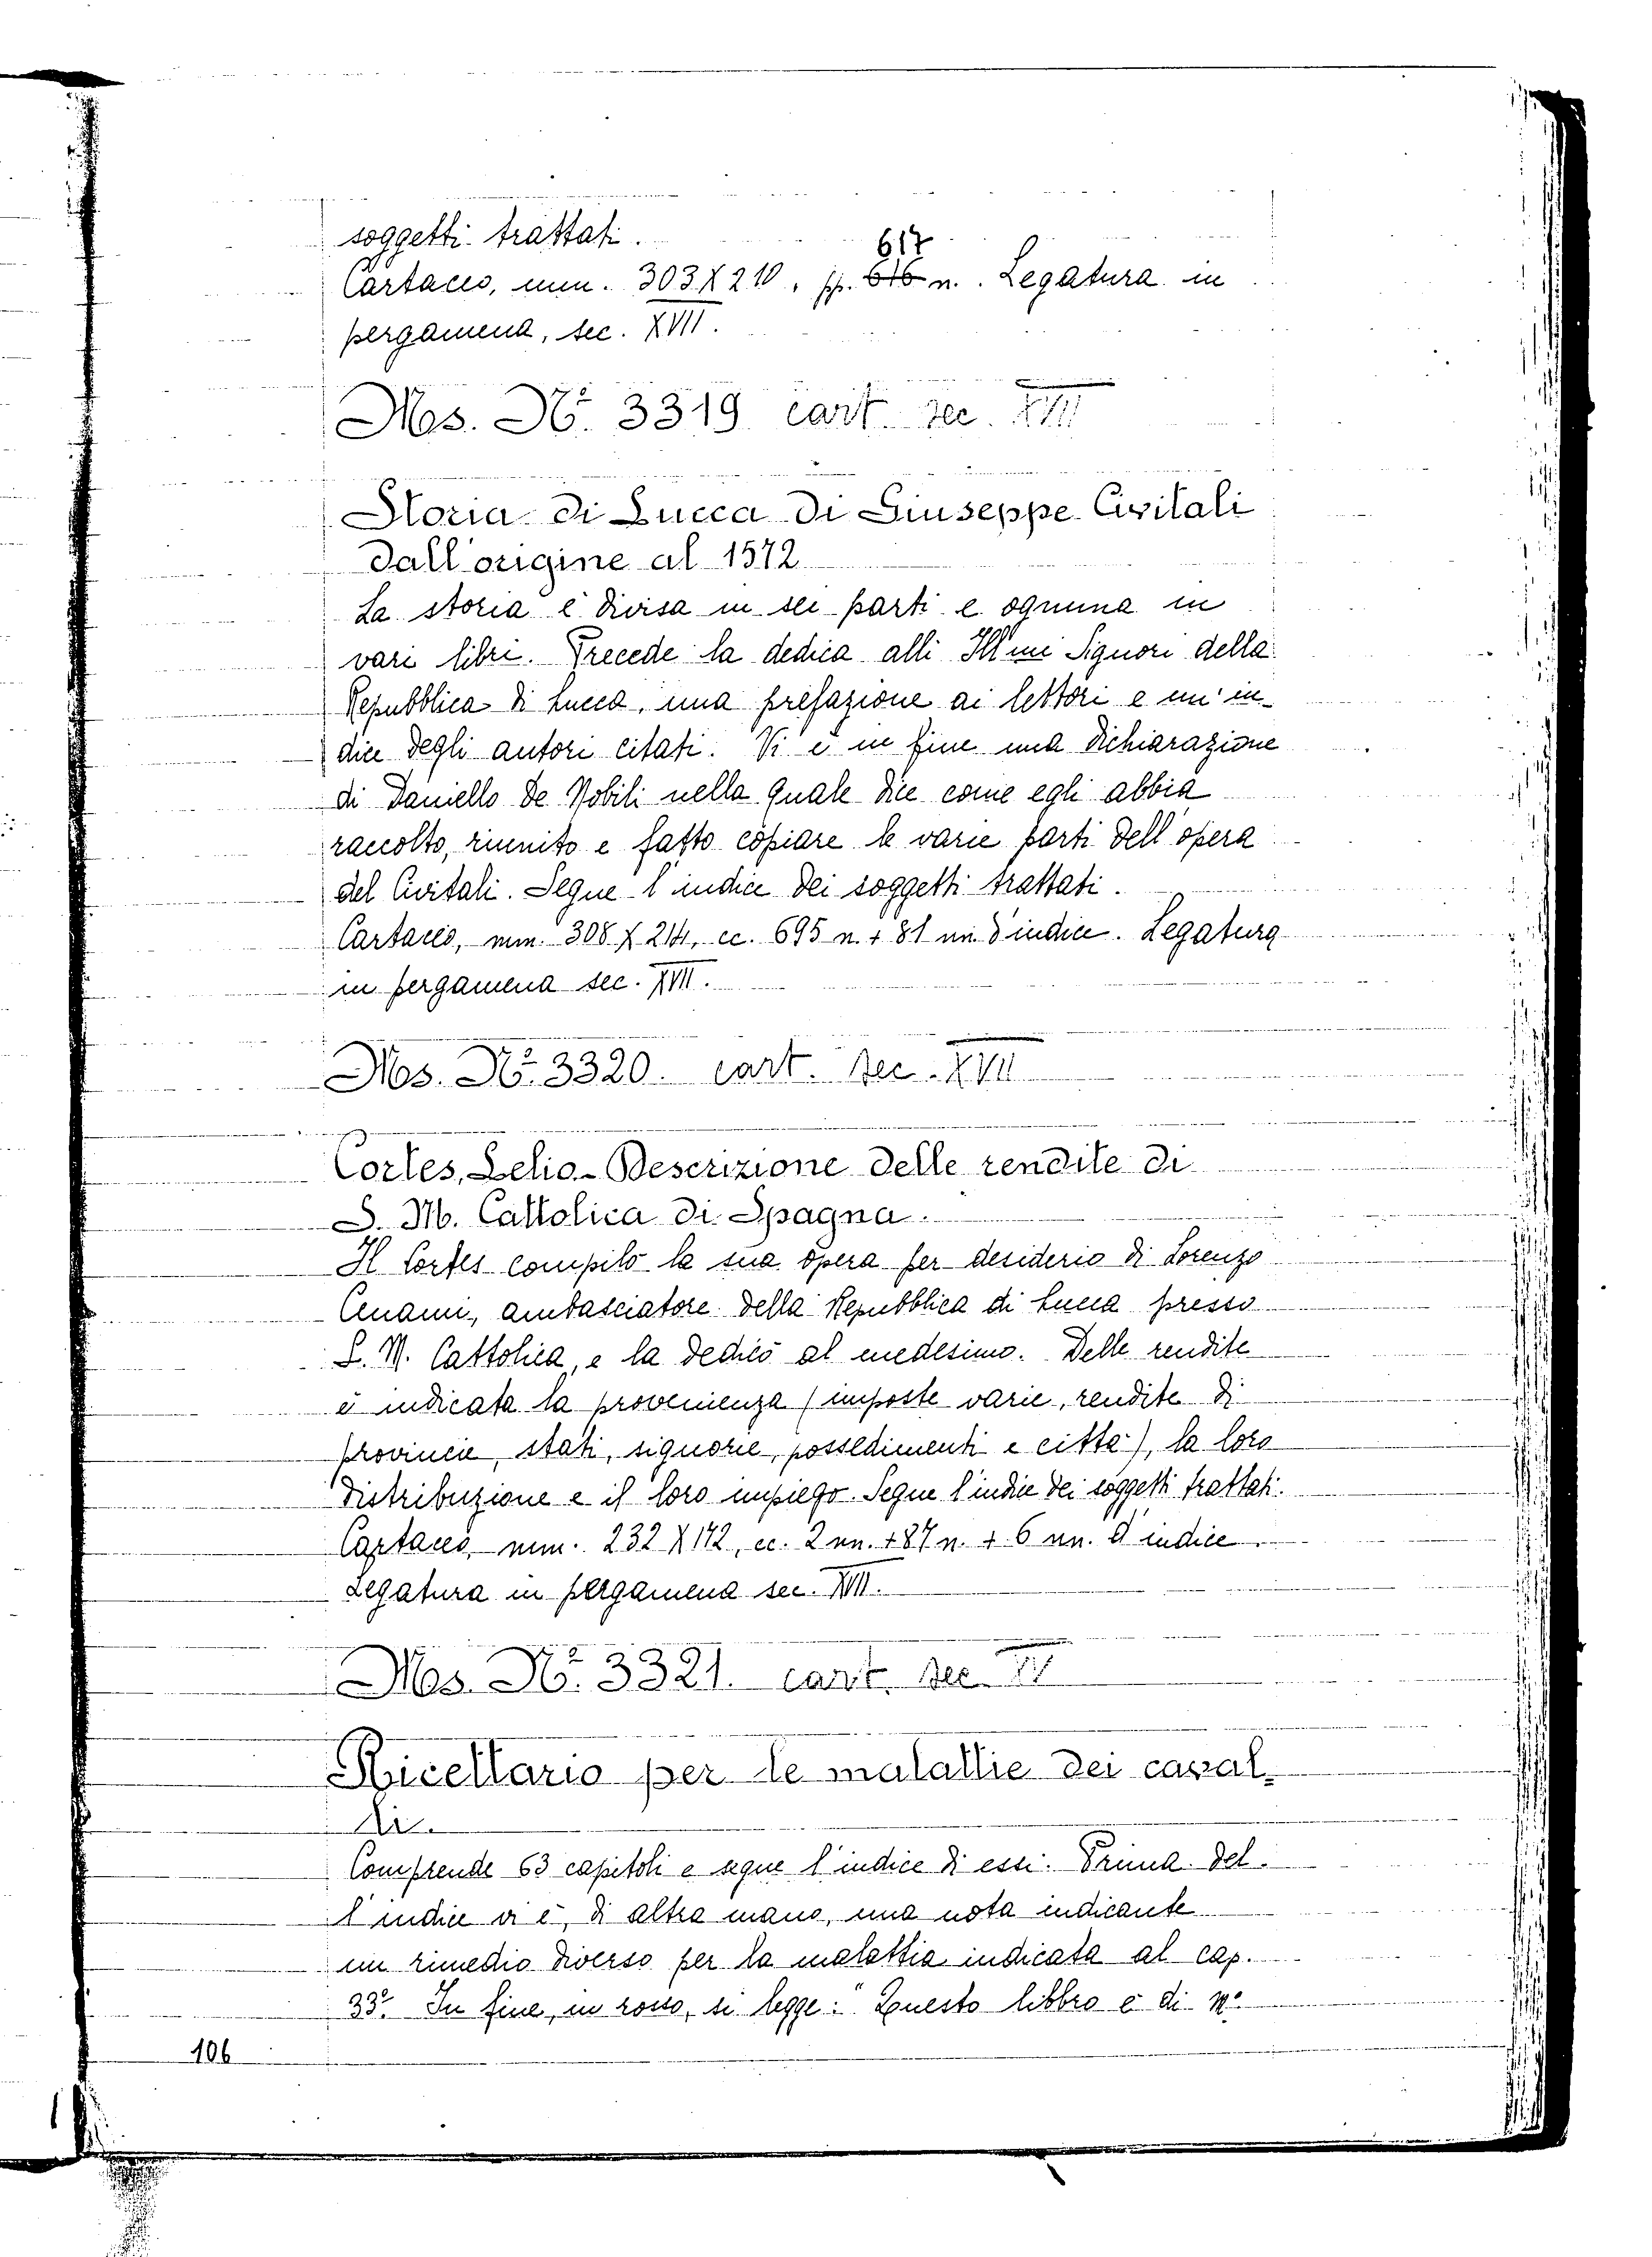 soggetti trattati.
617
Cartaceo, mm. 303 X 210, pp. 616 n. Legatura in
pergamena, sec. XVII.
Mos. No. 3319 cart. sec. XVII
Storia di Lucca di Giuseppe Civitali
dall'origine al 1572
La storia è divisa in sei parti e ognuna in
vari libri. Precede la dedica alli Ill'mi Signori della
Repubblica di Lucca, una prefazione ai lettori e un' in-
dice degli autori citati. Vi è in fine una dichiarazione
di Daniello De Nobili nella quale dice come egli abbia
raccolto, riunito e fatto copiare le varie parti dell'opera
del Civitali. Segue l'indice dei soggetti trattati.
Cartaceo, mm. 308 X 214, cc. 695 n. + 81 nn. d'indice. Legatura
in pergamena sec. XVII.
Mos. No. 3320. cart. sec. XVII
Cortes, Lelio - Descrizione delle rendite di
S. M. Cattolica di Spagna.
Il Cortes compilò la sua opera per desiderio di Lorenzo
Cenami, ambasciatore della Repubblica di Lucca presso
S. M. Cattolica, e la dedicò al medesimo. Delle rendite
è indicata la provenienza (imposte varie, rendite di
provincie, stati, signorie, possedimenti e città), la loro
distribuzione e il loro impiego. Segue l'indice dei soggetti trattati.
Cartaceo, mm. 232 X 172, cc. 2 nn. + 87 n. + 6 nn. d'indice.
Legatura in pergamena sec. XVII.
Mos. No. 3321. cart. sec. XV
Ricettario per le malattie dei caval-
li.
Comprende 63 capitoli e segue l'indice di essi. Prima del-
l'indice vi è, di altra mano, una nota indicante
un rimedio diverso per la malattia indicata al cap.
33°. In fine, in rosso, si legge: "Questo libbro è di Mo
106